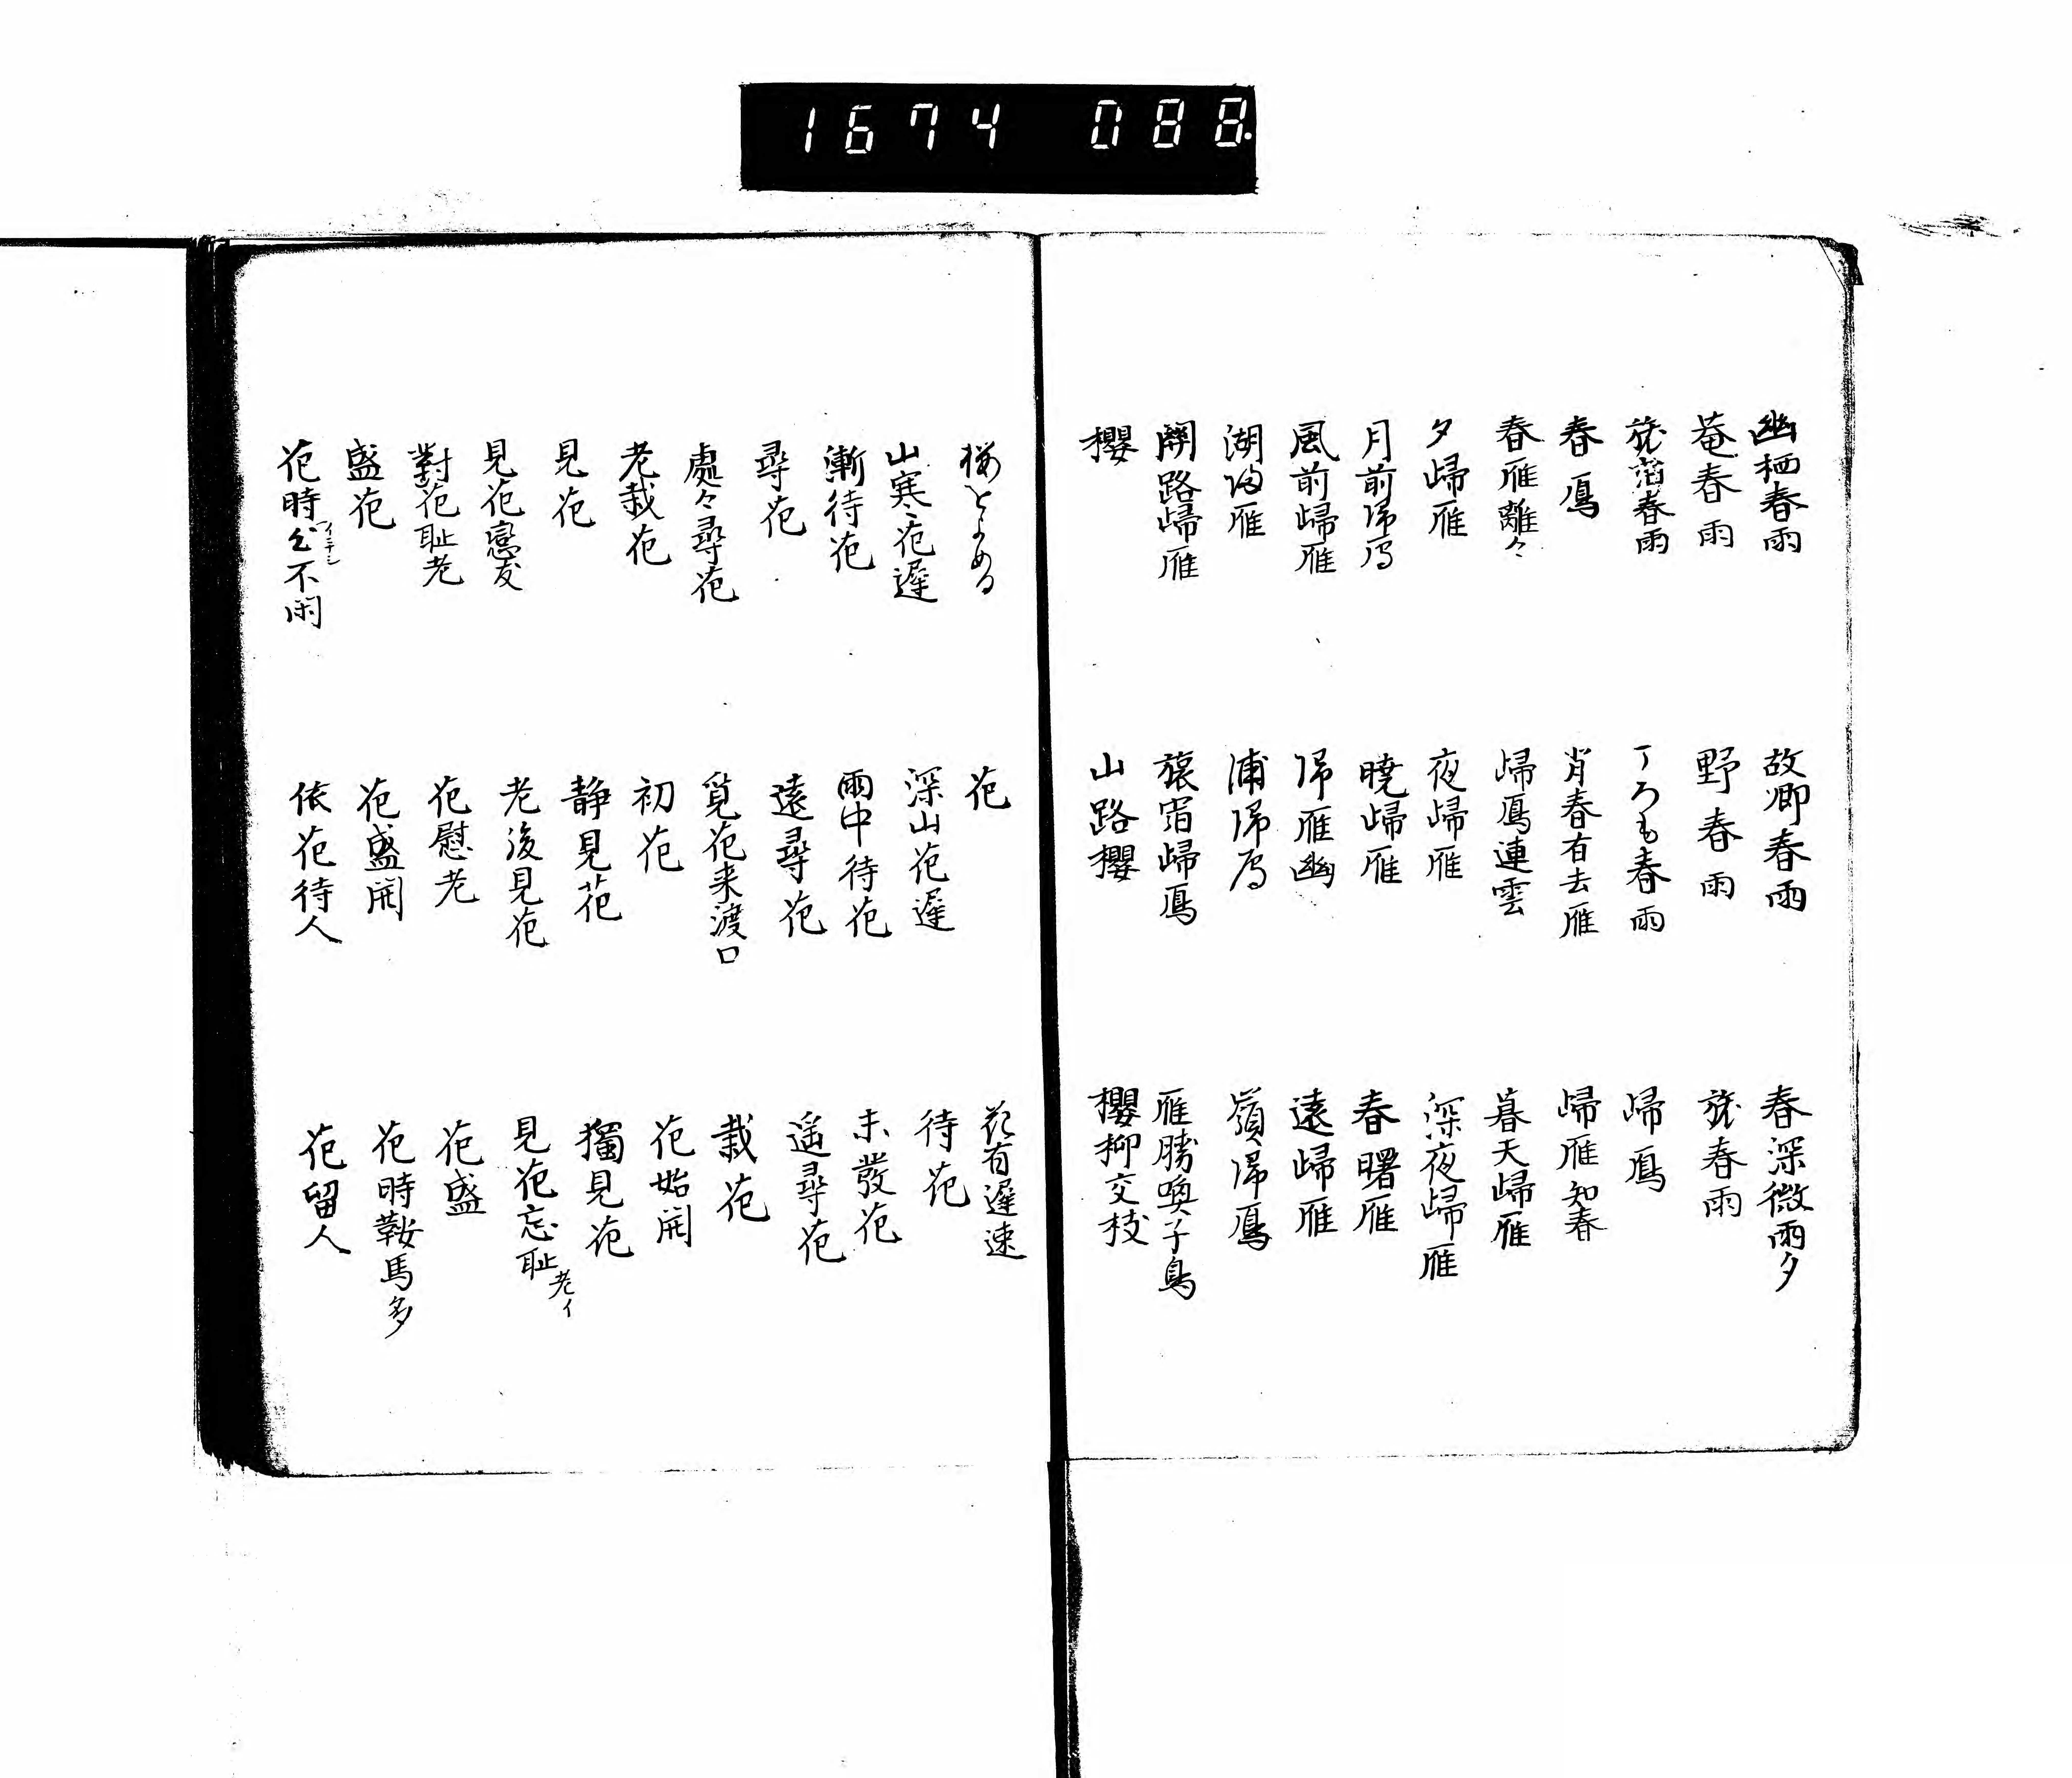 1674 088.
幽栖春雨 故郷春雨 春深微雨夕
菴春雨 野春雨 旅春雨
旅宿春雨 春雨 歸鳫
春鳫 肖春有去雁 歸雁知春
春雁離々 歸鳫連雲 暮天歸雁
夕歸雁 夜歸雁 深夜歸雁
月前帰鳫 曉歸雁 春曙雁
風前歸雁 帰雁幽 遠歸雁
湖帰雁 浦帰鳫 嶺帰鳫
関路歸雁 旅宿歸鳫 雁勝喚子鳥
櫻 山路櫻 櫻柳交枝
桜をよめる 花 花有遲速
山寒花遲 深山花遲 待花
漸待花 雨中待花 未發花
尋花 遠尋花 遥尋花
處々尋花 覓花来渡口 栽花
老栽花 初花 花始開
見花 静見花 獨見花
見花戀友 老後見花 見花忘耻老イ
對花耻老 花慰老 花盛
盛花 花盛開 花時鞍馬多
花時心不閑 依花待人 花留人